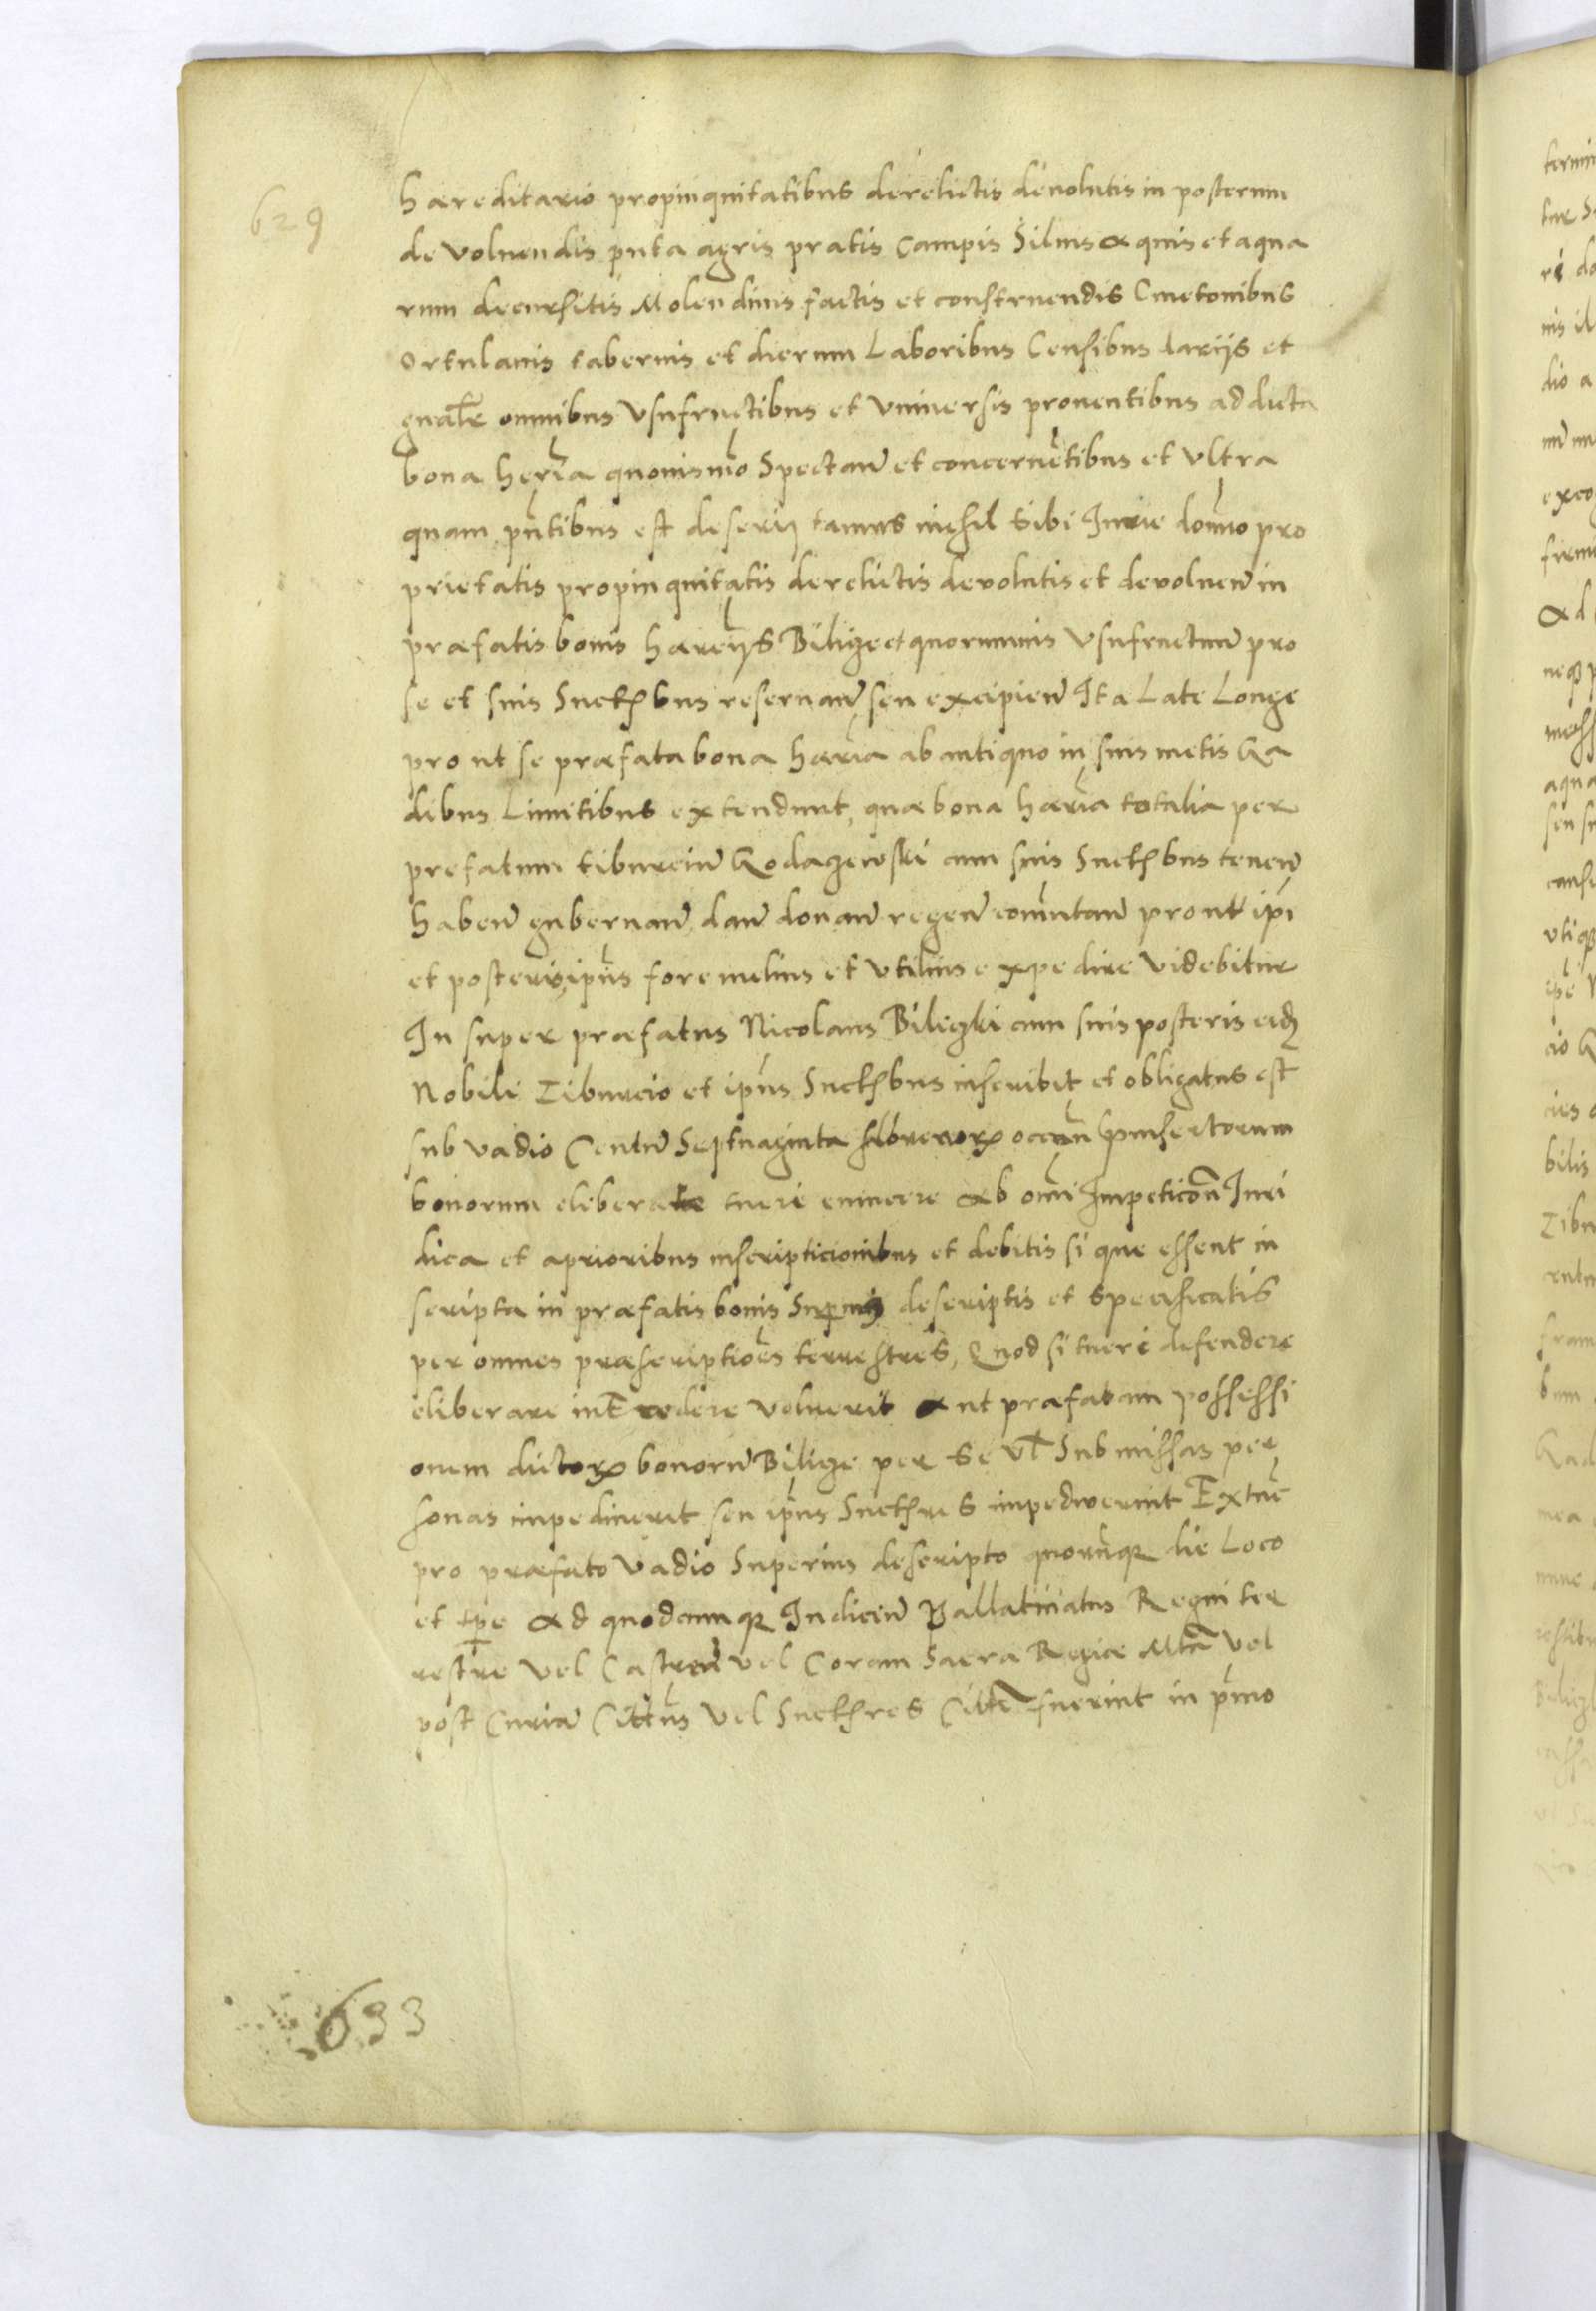 629
haereditario propinquitatibus derelictis devolutis in posterum
de volvendis puta agris pratis Campis Silvis aquis et aqua
rum decursitis Molendinis factis et construendis Cmetonibus
ortulanis tabernis et dierum Laboribus Censibus daciis et
gnalr omnibus Usufructibus et Universis proventibus ad dicta
bona heria quovismo Spectan et concernetibus et Ultra
quam pntibus est descrip tamus nichil sibi Iuris domo pro
prietatis propinquitatis derelictis devolutis et devolven in
praefatis bonis haerijs Bilicze et quorumvis Usufructuum pro
se et suis Succthbus reservan seu excipien Ita Late Longe
prout se praefata bona haeria ab antiquo in suis metis Ga
dibus Limitibus extendunt, quae bona haeria totalia per
prefatum tiburciu Godaczewski cum suis Succthbus tenen
haben gubernan dan donan regen comutan prout ipi
et posteris ipius fore melius et Utilius expedire Videbitur
In super praefatus Nicolaus Biliczki cum suis posteris eidem
Nobili Tiburcio et ipius Succthbus inscribit et obligatus est
sub vadio Centu Septuaginta florenorum occan hminsertorum
bonorum eliberare tueri evincere ab omi Impeticon Iuri
dica et a prioribus inscripticionibus et debitis si que essent in
scripta in praefatis bonis Superius descriptis et specificatis
per omnes praescriptiones terrestres, Quod si tueri defendere
eliberare intercedere voluerit aut praefatam possessi
onem dictorum bonorum Bilicze per se vel Submissas per
sonas impediverit seu ipius Succthres impediverint Extuc
pro praefato Vadio Superius descripto quocunque die Loco
et tpe ad quodcumque Iudiciu Pallatinatus Regni ter
restre vel Castren vel Coram Sacra Regia Mta vel
post Curia Cittus vel Succthres Citti fuerint in pimo
633